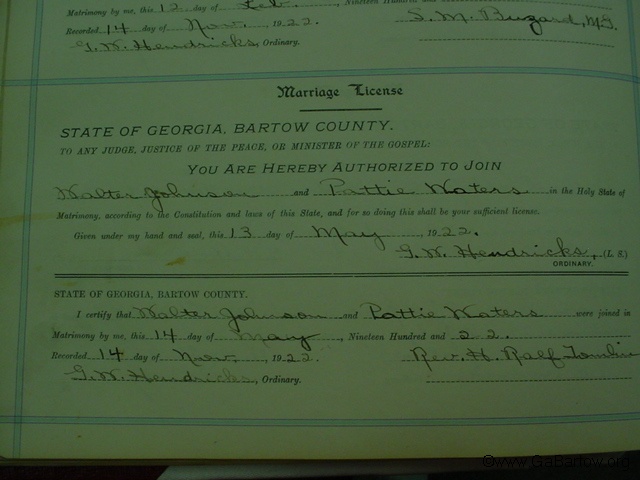 Matrimony by me, this 12 day of Feb., Nineteen Hundred and
Recorded 14 day of Nov., 1922. S. M. Buzard, M.G.
G. W. Hendricks, Ordinary.
Marriage License
STATE OF GEORGIA, BARTOW COUNTY.
TO ANY JUDGE, JUSTICE OF THE PEACE, OR MINISTER OF THE GOSPEL:
YOU ARE HEREBY AUTHORIZED TO JOIN
Walter Johnson and Pattie Waters in the Holy State of
Matrimony, according to the Constitution and laws of this State, and for so doing this shall be your sufficient license.
Given under my hand and seal, this 13 day of May, 1922.
G. W. Hendricks, (L. S.)
ORDINARY.
STATE OF GEORGIA, BARTOW COUNTY.
I certify that Walter Johnson and Pattie Waters were joined in
Matrimony by me, this 14 day of May, Nineteen Hundred and 22.
Recorded 14 day of Nov., 1922. Rev. H. Ralf Tomlin
G. W. Hendricks, Ordinary.
©www.GaBartow.org